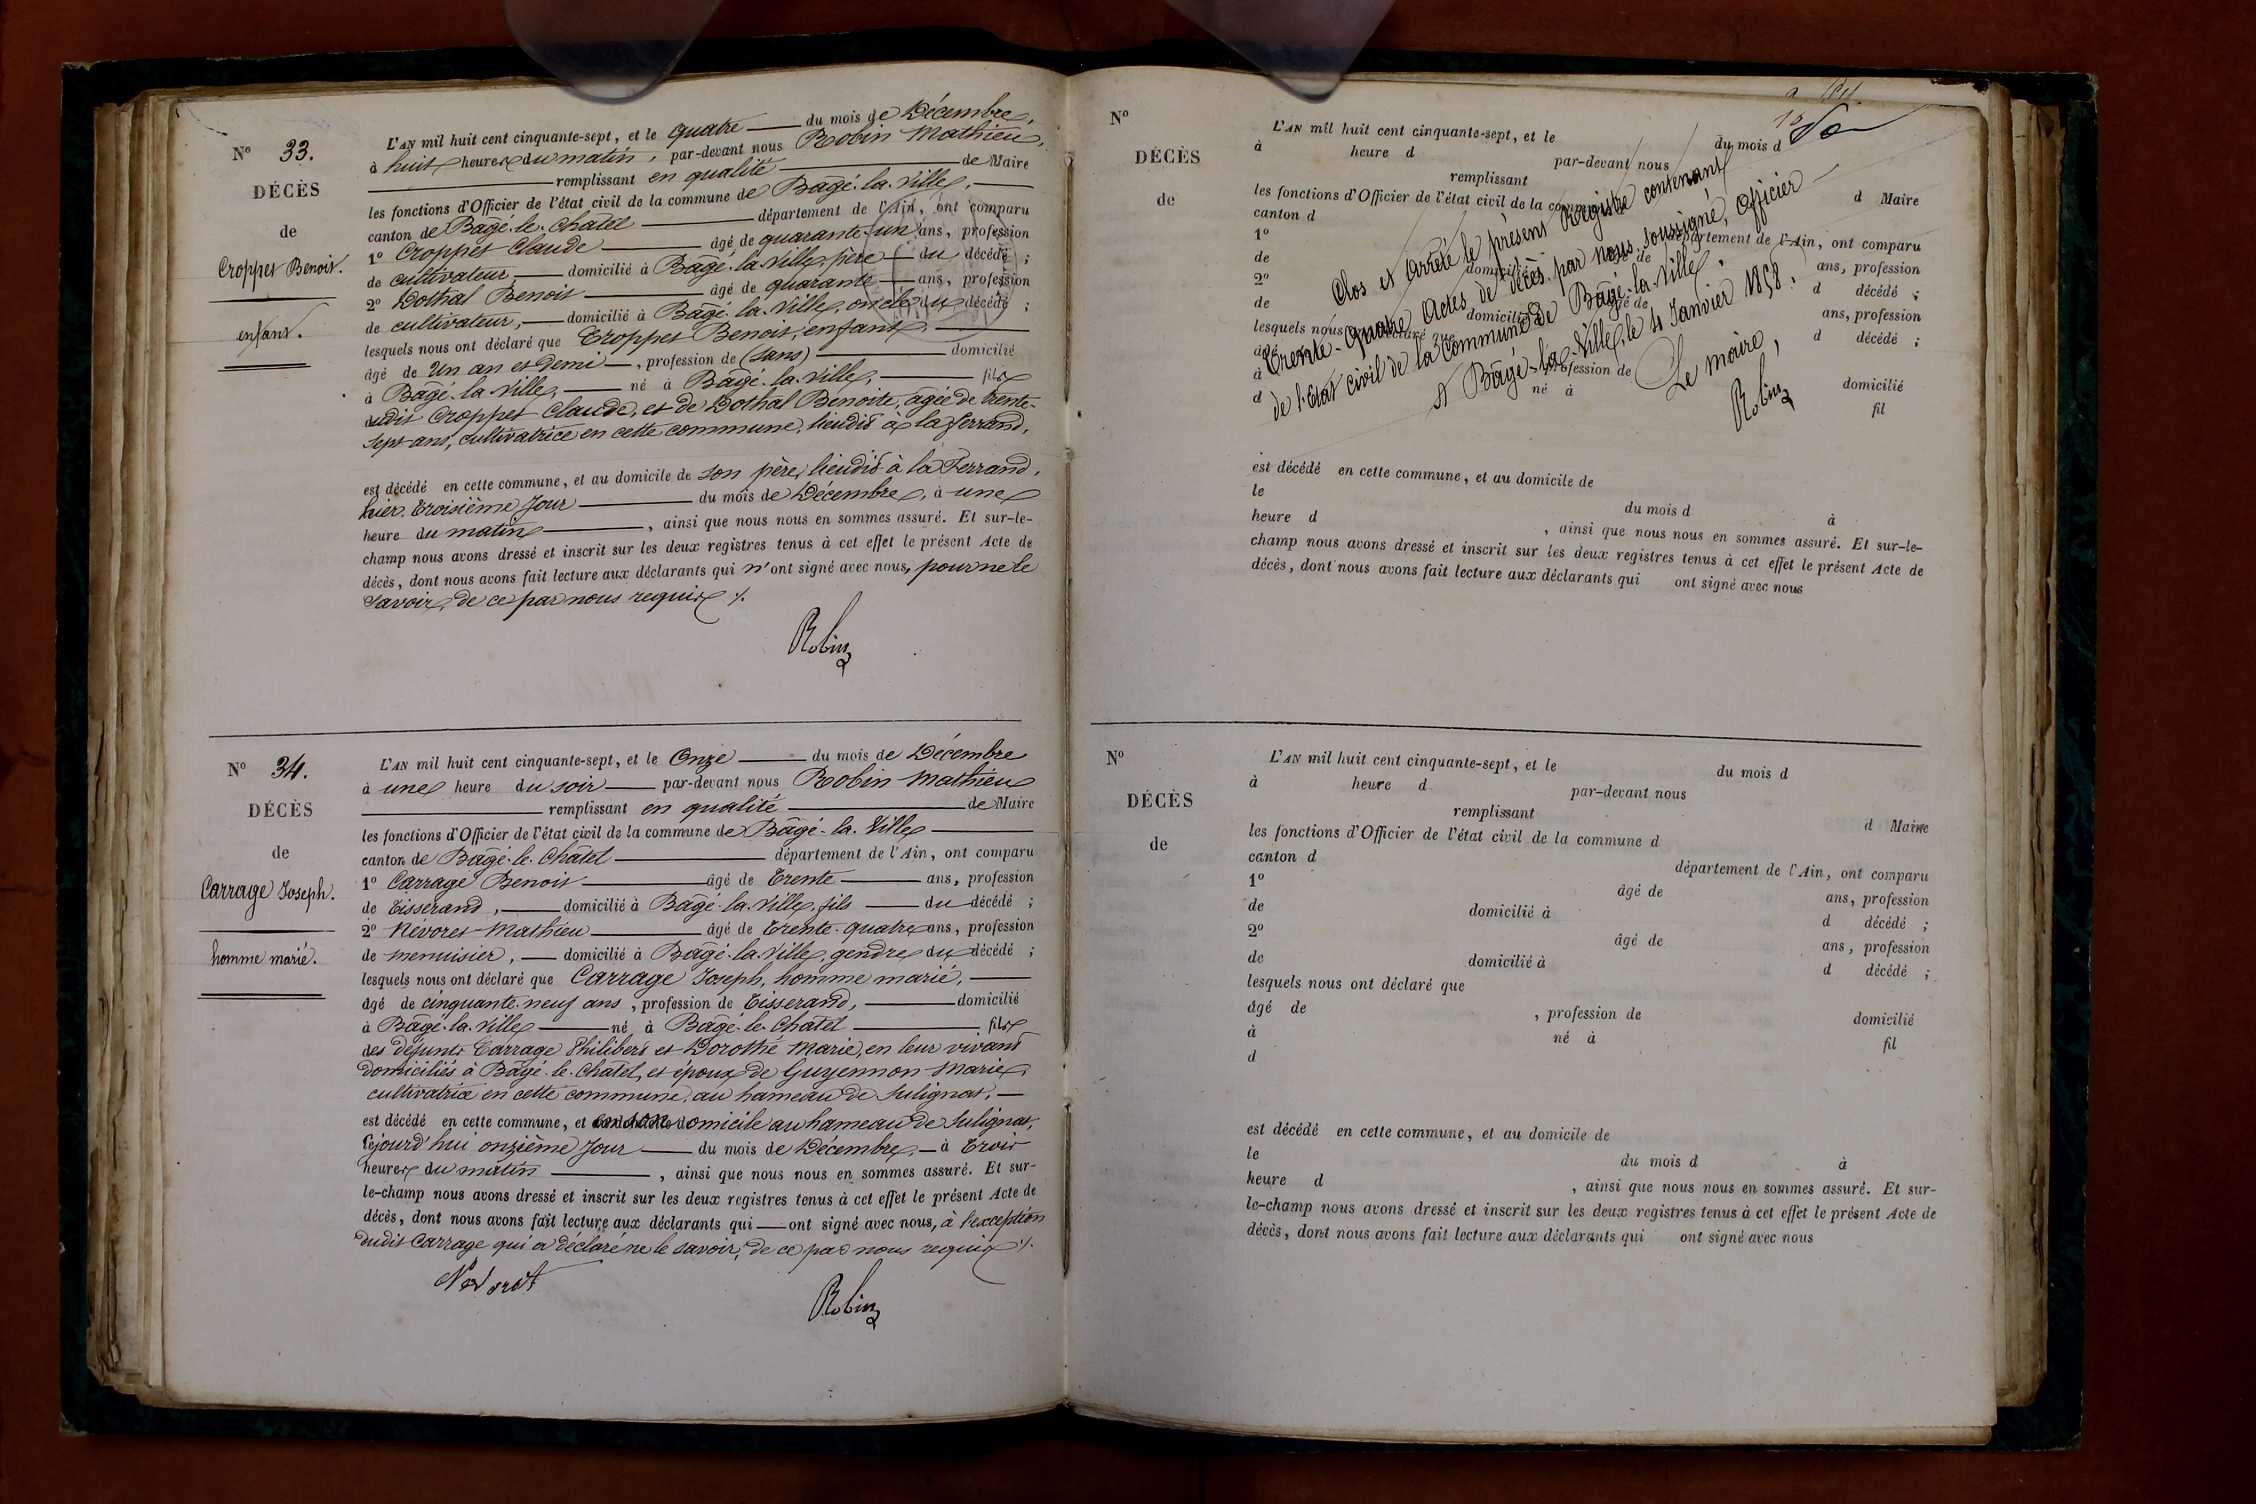 N° 33.
DÉCÈS
de
Croppet Benoit.
enfant.
L'AN mil huit cent cinquante-sept, et le quatre du mois de Décembre,
à huit heures du matin, par-devant nous Robin Mathieu,
remplissant en qualité de Maire
les fonctions d'Officier de l'état civil de la commune de Bâgé-la-Ville,
canton de Bâgé-le-Chatel département de l'Ain, ont comparu
1° Croppet Claude âgé de quarante-un ans, profession
de cultivateur domicilié à Bâgé-la-Ville, père du décédé ;
2° Dothal Benoit âgé de quarante ans, profession
de cultivateur, domicilié à Bâgé-la-Ville, oncle du décédé ;
lesquels nous ont déclaré que Croppet Benoit, enfant,
âgé de un an et Demi, profession de (sans) domicilié
à Bâgé-la-Ville, né à Bâgé-la-Ville, fils
dudit Croppet Claude, et de Dothal Benoite, agée de trente-
sept ans, cultivatrice en cette commune, lieudit à la ferrand,
est décédé en cette commune, et au domicile de son père, lieudit à la Ferrand,
hier troisième Jour du mois de Décembre, à une
heure du matin, ainsi que nous nous en sommes assuré. Et sur-le-
champ nous avons dressé et inscrit sur les deux registres tenus à cet effet le présent Acte de
décès, dont nous avons fait lecture aux déclarants qui n'ont signé avec nous, pour ne le
savoir, de ce par nous requis ./.
Robin
N° 34.
DÉCÈS
de
Carrage Joseph.
homme marié.
L'AN mil huit cent cinquante-sept, et le Onze du mois de Décembre
à une heure du soir par-devant nous Robin Mathieu
remplissant en qualité de Maire
les fonctions d'Officier de l'état civil de la commune de Bâgé-la-Ville
canton de Bâgé-le-Châtel département de l'Ain, ont comparu
1° Carrage Benoit âgé de Trente ans, profession
de Tisserand, domicilié à Bâgé-la-Ville, fils du décédé ;
2° Névoret Mathieu âgé de Trente-quatre ans, profession
de menuisier, domicilié à Bâgé-la-Ville, gendre du décédé ;
lesquels nous ont déclaré que Carrage Joseph, homme marié,
âgé de cinquante-neuf ans, profession de Tisserand, domicilié
à Bâgé-la-Ville né à Bâgé-le-Chatel fils
des défunts Carrage Philibert et Dorothé Marie, en leur vivant
domiciliés à Bâgé-le-Chatel, et époux de Guyennon Marie,
cultivatrice en cette commune, au hameau de Sulignat,
est décédé en cette commune, et en son domicile au hameau de Sulignat,
cejourd'hui onzième Jour du mois de Décembre, à Trois
heures du matin, ainsi que nous nous en sommes assuré. Et sur-
le-champ nous avons dressé et inscrit sur les deux registres tenus à cet effet le présent Acte de
décès, dont nous avons fait lecture aux déclarants qui ont signé avec nous, à l'exception
dudit Carrage qui a déclaré ne le savoir, de ce par nous requis ./.
Nevoret
Robin
N°
DÉCÈS
de
L'AN mil huit cent cinquante-sept, et le du mois d
à heure d par-devant nous
remplissant d Maire
les fonctions d'Officier de l'état civil de la commune d
canton d département de l'Ain, ont comparu
1° âgé de ans, profession
de domicilié à d décédé ;
2° âgé de ans, profession
de domicilié à d décédé ;
lesquels nous ont déclaré que
âgé de profession de domicilié
à né à fil
d
Clos et Arrêté le présent Registre contenant
Trente-quatre Actes de décès par nous soussigné, officier
de l'Etat civil de la Commune de Bâgé-la-Ville.
A Bâgé-la-Ville, le 4 Janvier 1858.
Le maire,
Robin
est décédé en cette commune, et au domicile de
le du mois d à
heure d , ainsi que nous nous en sommes assuré. Et sur-le-
champ nous avons dressé et inscrit sur les deux registres tenus à cet effet le présent Acte de
décès, dont nous avons fait lecture aux déclarants qui ont signé avec nous
N°
DÉCÈS
de
L'AN mil huit cent cinquante-sept, et le du mois d
à heure d par-devant nous
remplissant d Maire
les fonctions d'Officier de l'état civil de la commune d
canton d département de l'Ain, ont comparu
1° âgé de ans, profession
de domicilié à d décédé ;
2° âgé de ans, profession
de domicilié à d décédé ;
lesquels nous ont déclaré que
âgé de , profession de domicilié
à né à fil
d
est décédé en cette commune, et au domicile de
le du mois d à
heure d , ainsi que nous nous en sommes assuré. Et sur-
le-champ nous avons dressé et inscrit sur les deux registres tenus à cet effet le présent Acte de
décès, dont nous avons fait lecture aux déclarants qui ont signé avec nous